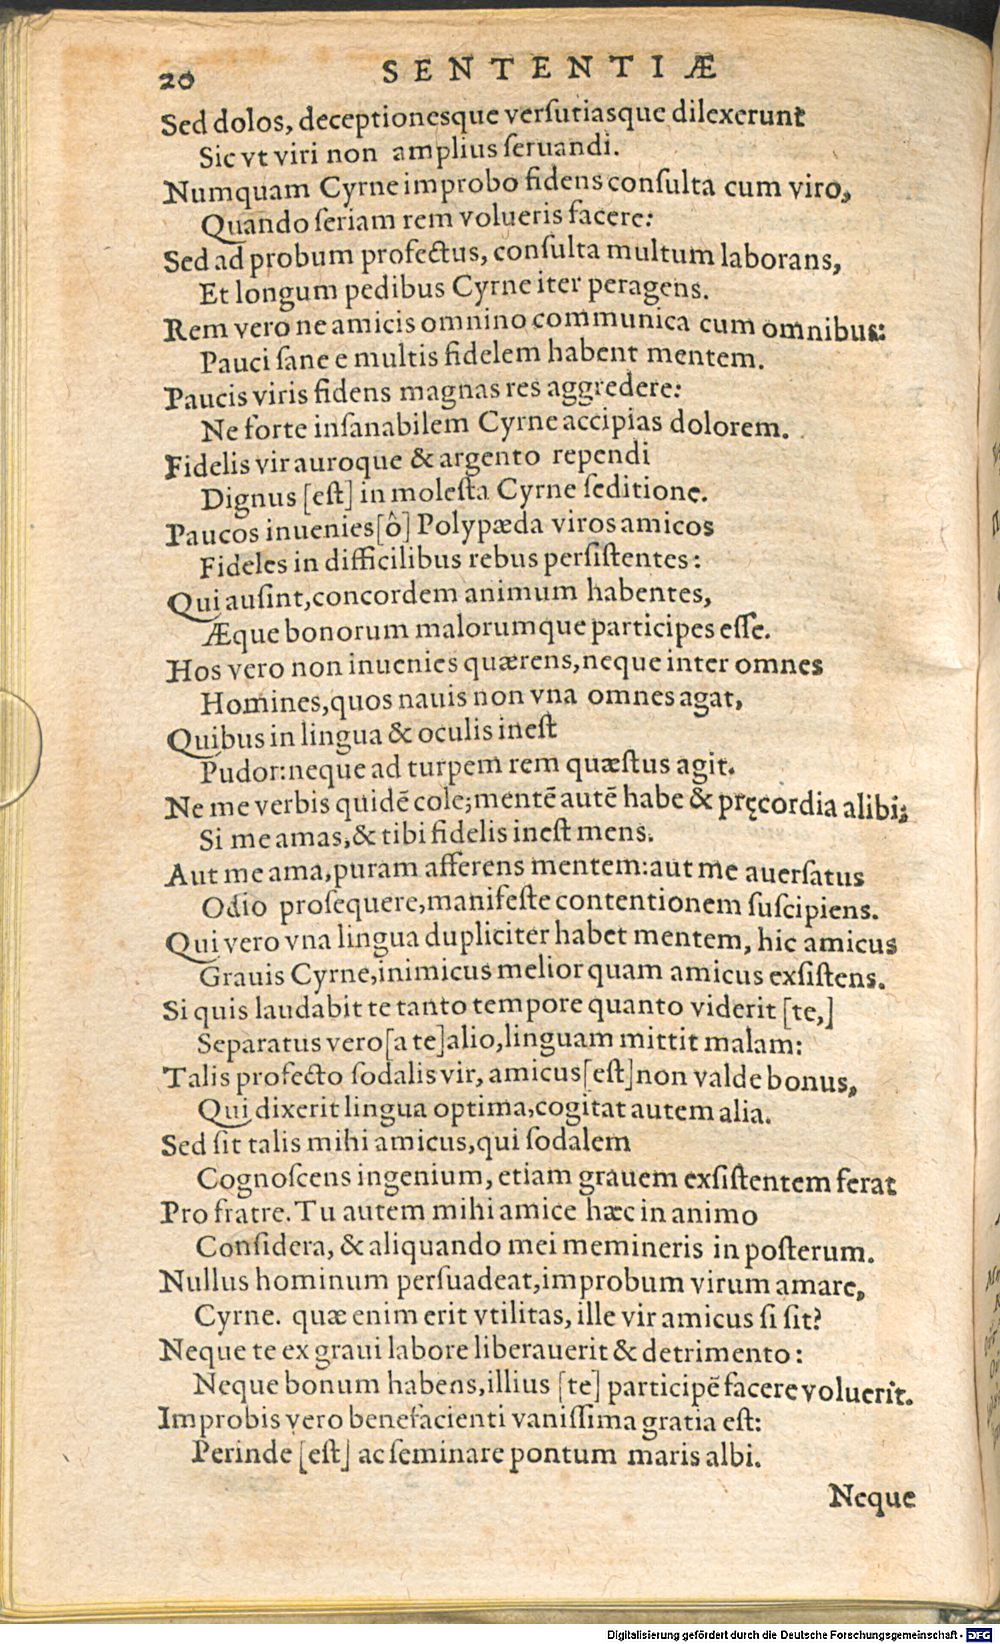 20 SENTENTIÆ
Sed dolos, deceptionesque verſutiasque dilexerunt
Sic vt viri non amplius ſeruandi.
Numquam Cyrne improbo fidens conſulta cum viro,
Quando ſeriam rem volueris facere:
Sed ad probum profectus, conſulta multum laborans,
Et longum pedibus Cyrne iter peragens.
Rem vero ne amicis omnino communica cum omnibus:
Pauci ſane e multis fidelem habent mentem.
Paucis viris fidens magnas res aggredere:
Ne forte inſanabilem Cyrne accipias dolorem.
Fidelis vir auroque & argento rependi
Dignus [eſt] in moleſta Cyrne ſeditione.
Paucos inuenies [ô] Polypæda viros amicos
Fideles in difficilibus rebus perſiſtentes:
Qui auſint, concordem animum habentes,
Æque bonorum malorumque participes eſſe.
Hos vero non inuenies quærens, neque inter omnes
Homines, quos nauis non vna omnes agat,
Quibus in lingua & oculis ineſt
Pudor: neque ad turpem rem quæſtus agit.
Ne me verbis quidē cole; mentē autē habe & pręcordia alibi;
Si me amas, & tibi fidelis ineſt mens.
Aut me ama, puram afferens mentem: aut me auerſatus
Odio proſequere, manifeſte contentionem ſuſcipiens.
Qui vero vna lingua dupliciter habet mentem, hic amicus
Grauis Cyrne, inimicus melior quam amicus exſiſtens.
Si quis laudabit te tanto tempore quanto viderit [te,]
Separatus vero [a te] alio, linguam mittit malam:
Talis profecto ſodalis vir, amicus [eſt] non valde bonus,
Qui dixerit lingua optima, cogitat autem alia.
Sed ſit talis mihi amicus, qui ſodalem
Cognoſcens ingenium, etiam grauem exſiſtentem ferat
Pro fratre. Tu autem mihi amice hæc in animo
Conſidera, & aliquando mei memineris in poſterum.
Nullus hominum perſuadeat, improbum virum amare,
Cyrne. quæ enim erit vtilitas, ille vir amicus ſi ſit?
Neque te ex graui labore liberauerit & detrimento:
Neque bonum habens, illius [te] participē facere voluerit.
Improbis vero benefacienti vaniſſima gratia eſt:
Perinde [eſt] ac ſeminare pontum maris albi.
Neque
Digitalisierung gefördert durch die Deutsche Forschungsgemeinschaft - DFG